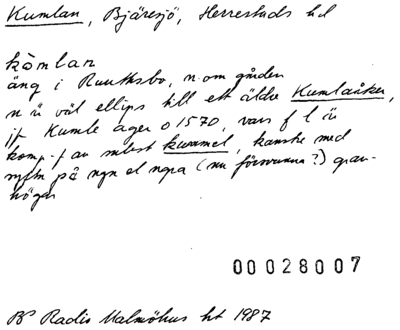 Kumlan, Bjäresjö, Herrestads hd
kòmlan
äng i Ruuthsbo, n. om gården
n är väl ellips till ett äldre Kumlaåker,
jf Kumle ager o 1570, vars f l är
komp.-f av subst kummel, kanske med
syftn på ngn el ngra (nu försvunna?) grav-
högar
00028007
Bo Radis Malmöhus ht 1987